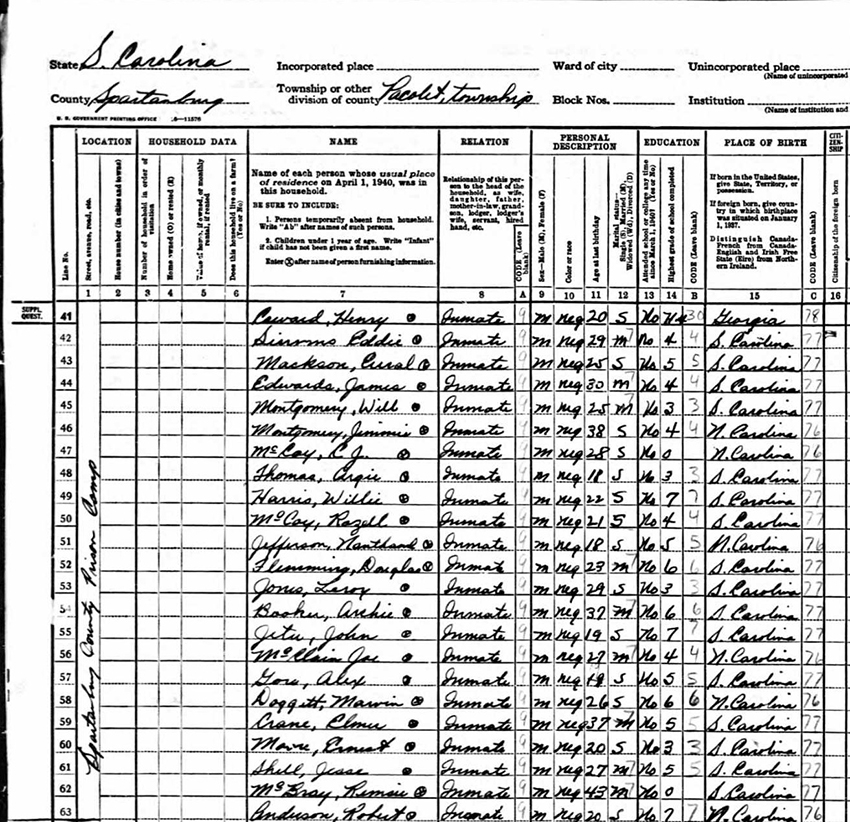 State S. Carolina Incorporated place Ward of city Unincorporated place
(Name of unincorporated
County Spartanburg Township or other division of county Pacolet, township Block Nos. Institution
(Name of institution and
U. S. GOVERNMENT PRINTING OFFICE 16—11576
LOCATION HOUSEHOLD DATA NAME RELATION PERSONAL DESCRIPTION EDUCATION PLACE OF BIRTH CITIZENSHIP
Line No.
Street, avenue, road, etc.
House number (in cities and towns)
Number of household in order of visitation
Home owned (O) or rented (R)
Value of home, if owned, or monthly rental, if rented
Does this household live on a farm? (Yes or No)
Name of each person whose usual place
of residence on April 1, 1940, was in
this household.
BE SURE TO INCLUDE:
1. Persons temporarily absent from household.
Write "Ab" after names of such persons.
2. Children under 1 year of age. Write "Infant"
if child has not been given a first name.
Enter ⓧ after name of person furnishing information.
Relationship of this person to the head of the household, as wife, daughter, father, mother-in-law, grandson, lodger, lodger's wife, servant, hired hand, etc.
CODE (Leave blank)
Sex—Male (M), Female (F)
Color or race
Age at last birthday
Marital status—Single (S), Married (M), Widowed (Wd), Divorced (D)
Attended school or college any time since March 1, 1940? (Yes or No)
Highest grade of school completed
CODE (Leave blank)
If born in the United States, give State, Territory, or possession.
If foreign born, give country in which birthplace was situated on January 1, 1937.
Distinguish Canada-French from Canada-English and Irish Free State (Eire) from Northern Ireland.
CODE (Leave blank)
Citizenship of the foreign born
1 2 3 4 5 6 7 8 A 9 10 11 12 13 14 B 15 C 16
SUPPL. QUEST.
Spartanburg County Prison Camp
41 Henry Inmate 9 M neg 20 S No 30 Georgia 78
42 Simms Eddie Inmate 9 M neg 29 M 7 No 4 4 S. Carolina 77
43 Inmate 9 M neg 25 S No 5 5 S. Carolina 77
44 Edwards, James Inmate 9 M neg 30 M 7 No 4 4 S. Carolina 77
45 Montgomery, Will Inmate 9 M neg 25 M 7 No 3 3 S. Carolina 77
46 Montgomery, Jimmie Inmate 9 M neg 38 S No 4 4 N. Carolina 76
47 McCoy, C. J. Inmate 9 M neg 28 S No 0 N. Carolina 76
48 Thomas, Argie Inmate 9 M neg 18 S No 3 3 S. Carolina 77
49 Harris, Willie Inmate 9 M neg 22 S No 7 7 S. Carolina 77
50 McCoy, Rozell Inmate 9 M neg 21 S No 4 4 S. Carolina 77
51 Jefferson, Inmate 9 M neg 18 S No 5 5 N. Carolina 76
52 Flemming, Douglas Inmate 9 M neg 23 M 7 No 6 6 S. Carolina 77
53 Jones, Leroy Inmate 9 M neg 29 S No 3 3 S. Carolina 77
54 Booker, Archie Inmate 9 M neg 37 M 7 No 6 6 S. Carolina 77
55 Jeter, John Inmate 9 M neg 19 S No 7 7 S. Carolina 77
56 McClain Joe Inmate 9 M neg 27 M 7 No 4 4 N. Carolina 76
57 Gore, Alex Inmate 9 M neg 19 S No 5 5 S. Carolina 77
58 Doggett, Marvin Inmate 9 M neg 26 S No 6 6 N. Carolina 76
59 Crane, Elmer Inmate 9 M neg 37 M 7 No 5 5 S. Carolina 77
60 Moore, Ernest Inmate 9 M neg 20 S No 3 3 S. Carolina 77
61 Shell, Jesse Inmate 9 M neg 27 M 7 No 5 5 S. Carolina 77
62 Inmate 9 M neg 43 M 7 No 0 S. Carolina 77
63 Anderson, Robert Inmate 9 M neg 20 S No 7 7 N. Carolina 76